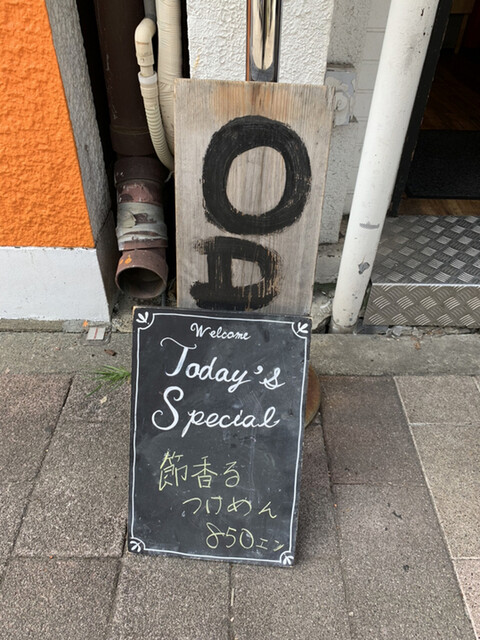 OA
Welcome
Today's
Special
節香る
つけめん
850エン